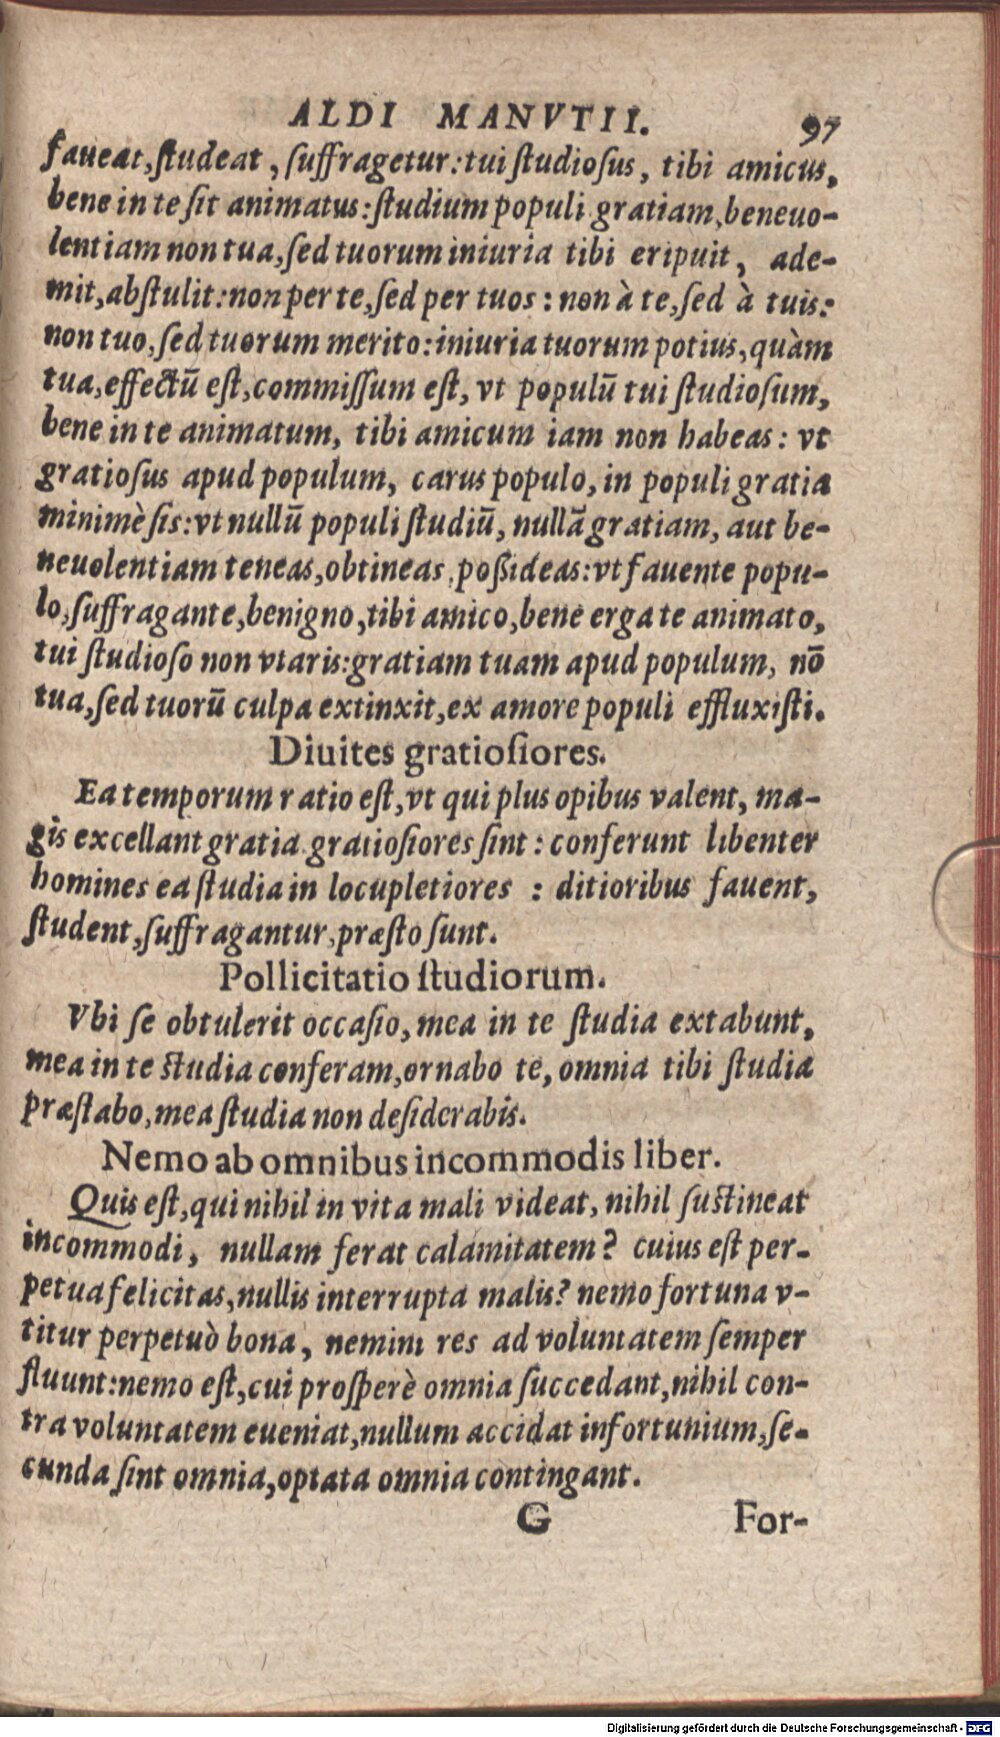 ALDI MANVTII. 97
faueat, ſtudeat, ſuffragetur: tui ſtudioſus, tibi amicus,
bene in te ſit animatus: ſtudium populi gratiam, beneuo-
lentiam non tua, ſed tuorum iniuria tibi eripuit, ade-
mit, abſtulit: non per te, ſed per tuos: non à te, ſed à tuis:
non tuo, ſed tuorum merito: iniuria tuorum potius, quàm
tua, effectũ eſt, commiſſum eſt, vt populũ tui ſtudioſum,
bene in te animatum, tibi amicum iam non habeas: vt
gratioſus apud populum, carus populo, in populi gratia
minimè ſis: vt nullũ populi ſtudiũ, nullã gratiam, aut be-
neuolentiam teneas, obtineas, poßideas: vt fauente popu-
lo, ſuffragante, benigno, tibi amico, bene erga te animato,
tui ſtudioſo non vtaris: gratiam tuam apud populum, nõ
tua, ſed tuorũ culpa extinxit, ex amore populi effluxiſti.
Diuites gratioſiores.
Ea temporum ratio eſt, vt qui plus opibus valent, ma-
gis excellant gratia gratioſiores ſint: conferunt libenter
homines ea ſtudia in locupletiores: ditioribus fauent,
ſtudent, ſuffragantur, præſto ſunt.
Pollicitatio ſtudiorum.
Vbi ſe obtulerit occaſio, mea in te ſtudia extabunt,
mea in te ſtudia conferam, ornabo te, omnia tibi ſtudia
præſtabo, mea ſtudia non deſiderabis.
Nemo ab omnibus incommodis liber.
Quis eſt, qui nihil in vita mali videat, nihil ſuſtineat
incommodi, nullam ferat calamitatem? cuius eſt per-
petua felicitas, nullis interrupta malis? nemo fortuna v-
titur perpetuò bona, nemini res ad voluntatem ſemper
fluunt: nemo eſt, cui proſperè omnia ſuccedant, nihil con-
tra voluntatem eueniat, nullum accidat infortunium, ſe-
cunda ſint omnia, optata omnia contingant.
G For-
Digitalisierung gefördert durch die Deutsche Forschungsgemeinschaft - DFG